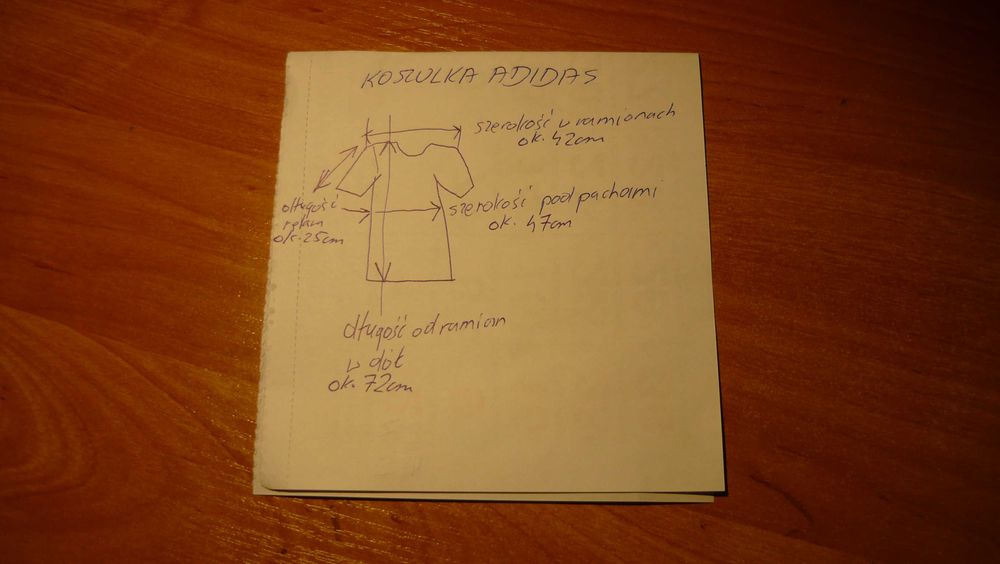 KOSZULKA ADIDAS
szerokość w ramionach
ok. 42cm
szerokość pod pachami
ok. 47cm
długość
rękaw
ok. 25cm
długość od ramion
w dół
ok. 72cm